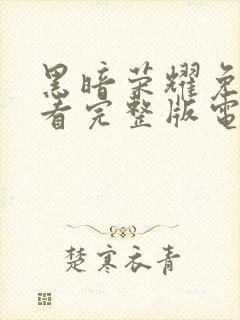 黑暗荣耀免
看完整版電
楚寒衣青